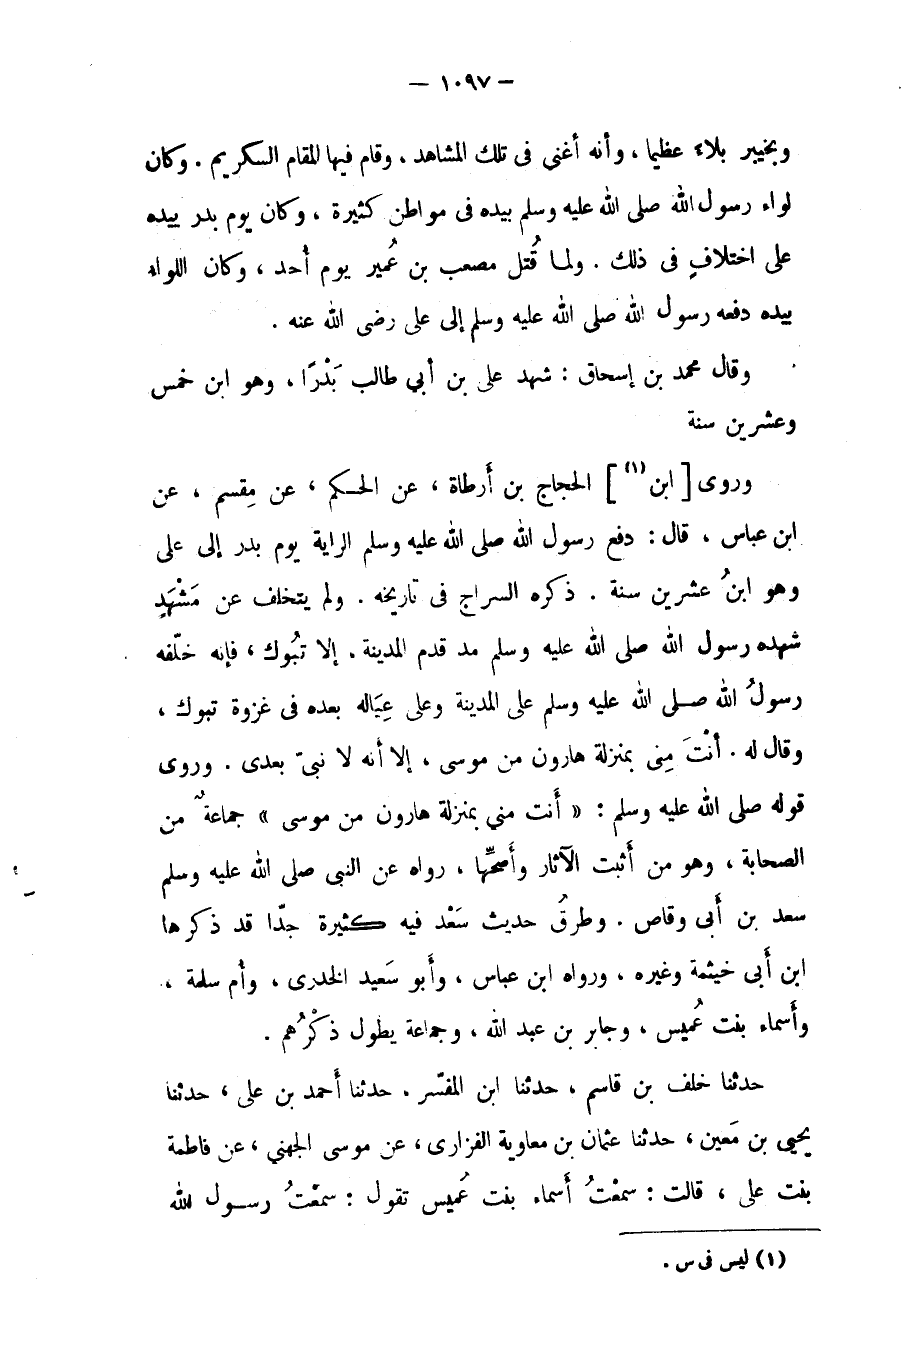 — ١٠٩٧ —
وبخيبر بلاءً عظيما ، وأنه أغنى فى تلك المشاهد ، وقام فيها المقام الكريم . وكان
لواء رسول الله صلى الله عليه وسلم بيده فى مواطن كثيرة ، وكان يوم بدر بيده
على اختلافٍ فى ذلك . ولما قُتل مصعب بن عُمير يوم أحد ، وكان اللواء
بيده دفعه رسول الله صلى الله عليه وسلم إلى على رضى الله عنه .
وقال محمد بن إسحاق : شهد على بن أبي طالب بَدْرًا ، وهو ابن خمس
وعشرين سنة
وروى [ ابن (١) ] الحجاج بن أَرطاة ، عن الحكم ، عن مِقسم ، عن
ابن عباس ، قال : دفع رسول الله صلى الله عليه وسلم الراية يوم بدر إلى على
وهو ابنُ عشرين سنة . ذكره السراج فى تاريخه . ولم يتخلف عن مَشْهَدٍ
شهده رسول الله صلى الله عليه وسلم مد قدم المدينة . إلا تبُوك ، فإنه خلّفه
رسولُ الله صلى الله عليه وسلم على المدينة وعلى عِيَاله بعده فى غزوة تبوك ،
وقال له . أنْتَ مِنى بمنزلة هارون من موسى ، إلا أنه لا نبىّ بعدى . وروى
قوله صلى الله عليه وسلم : « أَنت مني بمنزلة هارون من موسى » جماعةٌ من
الصحابة ، وهو من أَثبت الآثار وأَصحِّها ، رواه عن النبى صلى الله عليه وسلم
سعد بن أَبى وقاص . وطرقُ حديث سَعْد فيه كثيرة جدّا قد ذكرها
ابن أَبى خيثمة وغيره ، ورواه ابن عباس ، وأَبو سَعيد الخدرى ، وأم سلمة ،
وأَسماء بنت عُميس ، وجابر بن عبد الله ، وجماعة يطول ذكْرُهم .
حدثنا خلف بن قاسم ، حدثنا ابن المفسّر . حدثنا أَحمد بن على ، حدثنا
يحيى بن مَعين ، حدثنا عثمان بن معاوية الفزارى ، عن موسى الجهني ، عن فاطمة
بنت على ، قالت : سمعْتُ أَسماء بنت عُميس تقول : سمعْتُ رسول الله
(١) ليس فى س .